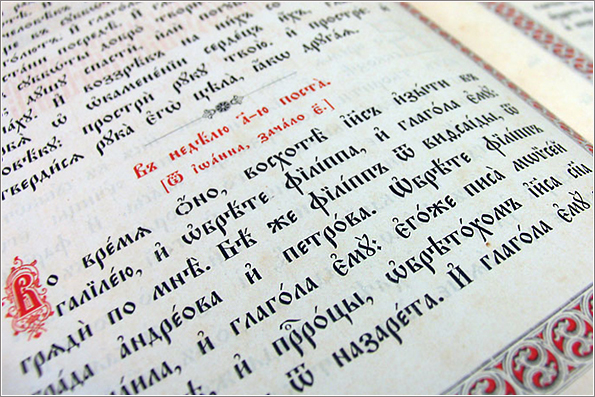 посредѣ. И҆
добро
дꙋ́шꙋ спастѝ, и҆лѝ
И҆ воззрѣ́въ на ни́хъ со
ѡ҆ ѡ҆каменє́нїи сердє́цъ и҆́хъ,
прострѝ рꙋ́кꙋ твою̀. и҆ прострѐ: и҆
тверди́сѧ рꙋка̀ є҆гѡ̀ цѣла̀, ꙗ҆́кѡ дрꙋга́ѧ.
Въ недѣ́лю а҃-ю поста̀.
[Ѿ і҆ѡа́нна, зача́ло є҃.]
Во вре́мѧ ѻ҆́но, восхотѣ̀ і҆и҃съ и҆зы́ти въ
галїле́ю, и҆ ѡ҆брѣ́те фїлі́ппа, и҆ глаго́ла є҆мꙋ̀:
грѧдѝ по мнѣ̀. Бѣ́ же фїлі́ппъ ѿ виѳсаі́ды, ѿ
гра́да а҆ндре́ова и҆ петро́ва. Ѡ҆брѣ́те фїлі́ппъ
и҆ глаго́ла є҆мꙋ̀: є҆го́же писа̀ мѡѷсе́й
и҆ прⷪ҇ро́цы, ѡ҆брѣто́хомъ і҆и҃са сн҃а
ѿ назаре́та. И҆ глаго́ла є҆мꙋ̀